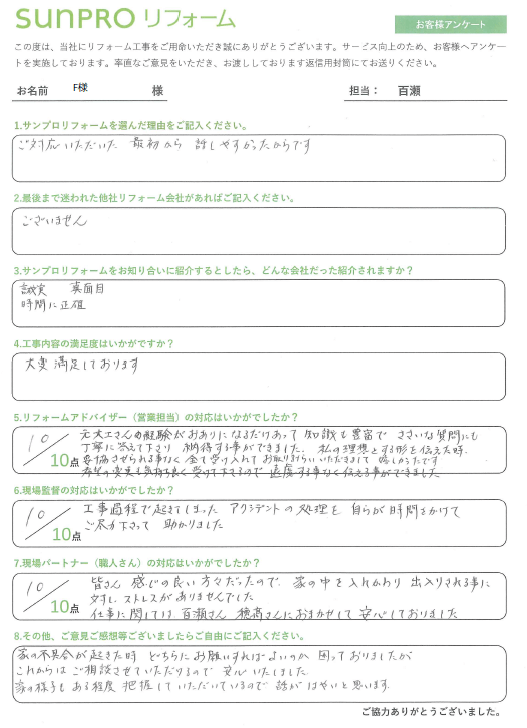 SUNPRO リフォーム
お客様アンケート
この度は、当社にリフォーム工事をご用命いただき誠にありがとうございます。サービス向上のため、お客様へアンケー
トを実施しております。率直なご意見をいただき、お渡ししております返信用封筒にてお送りください。
お名前 F様 様 担当： 百瀬
1.サンプロリフォームを選んだ理由をご記入ください。
ご対応いただいた 最初から 話しやすかったからです
2.最後まで迷われた他社リフォーム会社があればご記入ください。
ございません
3.サンプロリフォームをお知り合いに紹介するとしたら、どんな会社だった紹介されますか？
誠実 真面目
時間に正確
4.工事内容の満足度はいかがですか？
大変満足しております
5.リフォームアドバイザー（営業担当）の対応はいかがでしたか？
10／10点
元大工さんの経験がおありになるだけあって 知識も豊富で ささいな質問にも
丁寧に答えて下さり 納得する事ができました。私の理想とする形を伝えた時、
妥協させられる事なく 全て受け入れて お取りはからいいただきまして 嬉しかったです
希望の変更も気持ち良く 受けて下さるので 遠慮する事なく伝える事ができました
6.現場監督の対応はいかがでしたか？
10／10点
工事過程で起きてしまった アクシデントの処理を 自らが時間をかけて
ご尽力下さって 助かりました
7.現場パートナー（職人さん）の対応はいかがでしたか？
10／10点
皆さん 感じの良い方々だったので 家の中を入れかわり 出入りされる事に
対し ストレスがありませんでした
仕事に関しては 百瀬さん 穂高さんにおまかせして 安心しておりました
8.その他、ご意見ご感想等ございましたらご自由にご記入ください。
家の不具合が起きた時 どちらにお願いすればよいのか 困っておりましたが
これからは ご相談させていただけるので 安心いたしました
家の様子も ある程度 把握していただいているので 話がはやいと思います.
ご協力ありがとうございました。